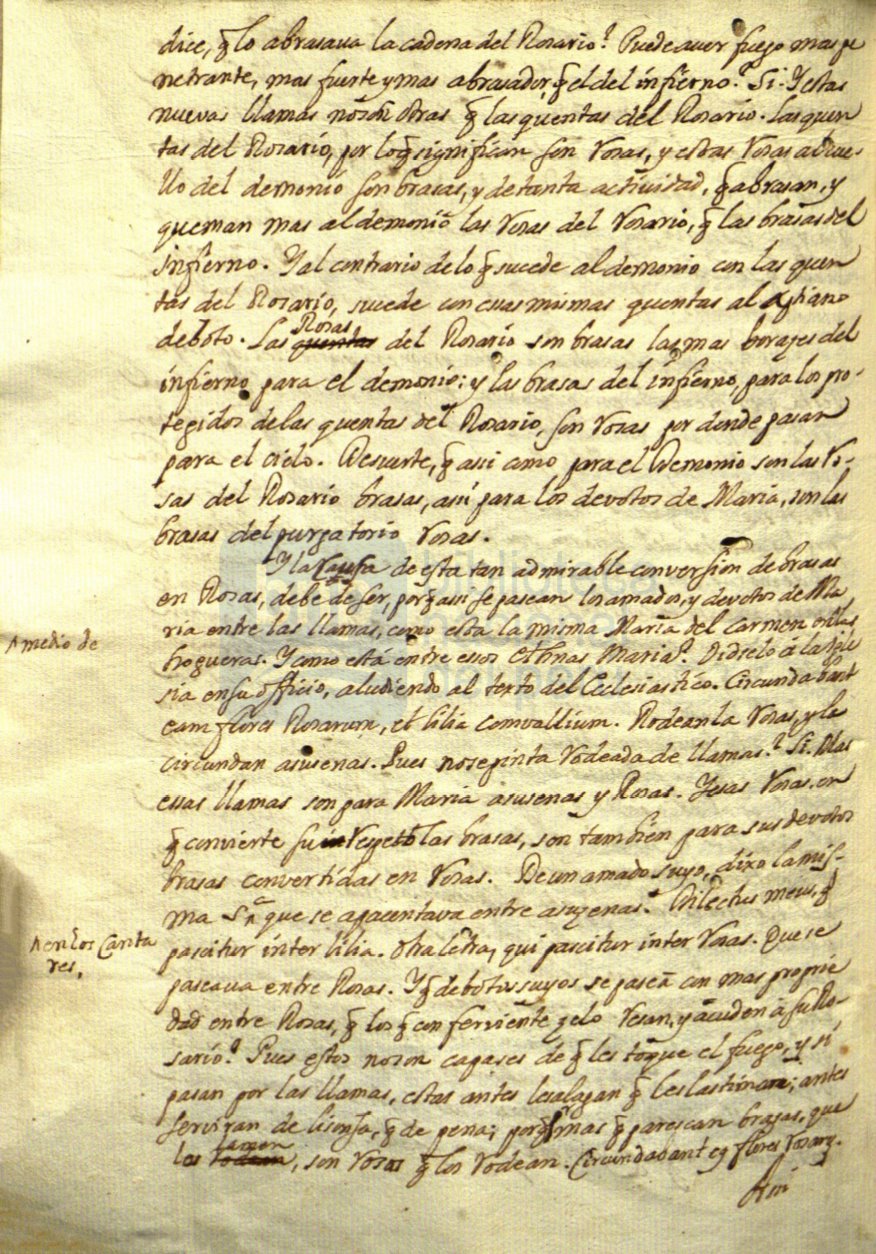 dice, q̃ lo abrasaua la cadena del Rosario? Puede auer fuego mas pe
netrante, mas fuerte y mas abrasador q̃ el del infierno? Si. Y estas
nuevas llamas no son otras q̃ las quentas del Rosario. Las quen
tas del Rosario, por lo q̃ significan son rosas, y estas rosas al cue-
llo del demonio son brasas, y de tanta actividad, q̃ abrasan, y
queman mas al demonio las rosas del rosario, q̃ las brasas del
infierno. Y al contrario de lo q̃ sucede al demonio con las quen
tas del Rosario, sucede con essas mismas quentas al xptiano
deboto. Las Rosas del Rosario son brasas las mas borazes del
infierno para el demonio; y las brasas del infierno, para los pro-
tegidos de las quentas del Rosario, son rosas por donde pasan
para el cielo. De suerte, q̃ assi como para el Demonio son las ro-
sas del Rosario brasas, assi para los devotos de Maria, son las
brasas del purgatorio rosas.
Y la causa de esta tan admirable conversion de brasas
en Rosas, debe de ser, porq̃ assi se pasean los amados, y devotos de Ma
ria entre las llamas, como esta la misma Maria del Carmen en las
A medio de
hogueras. Y como está entre essos Ethnas Maria? Diòselo à la Igle
sia en su officio, aludiendo al texto del Ecclesiastico. Circundabant
eam flores Rosarum, et lilia convallium. Rodeanla rosas, y la
circundan asusenas. Pues no se pinta rodeada de llamas? Si. Mas
essas llamas son para Maria asusenas y Rosas. Y esas rosas, en
q̃ convierte su respeto las brasas, son tambien para sus devotos
brasas convertidas en rosas. De un amado suyo, dixo la mis-
ma Sᵃ. que se apacentava entre asuzenas. Dilectus meus, q̃
A en los Canta
res,
pascitur inter lilia. Otra letra, qui pascitur inter rosas. Que se
paseaua entre Rosas. Y q̃ debotos suyos se pasean con mas proprie
dad entre Rosas, q̃ los q̃ con ferviente zelo resan, y acuden à su Ro-
sario? Pues estos no son capases de q̃ les toque el fuego, y si
pasan por las llamas, estas antes les alagan q̃ les lastiman; antes
serviran de lisonja, q̃ de pena; porq̃ mas q̃ parescan brasas, que
los lamen, son rosas q̃ los rodean. Circundabant eã flores rosarũ.
Assi